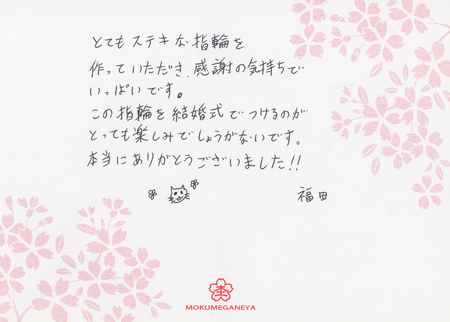 とてもステキな指輪を
作っていただき、感謝の気持ちで
いっぱいです。
この指輪を結婚式でつけるのが
とっても楽しみでしょうがないです。
本当にありがとうございました!!
福田
MOKUMEGANEYA